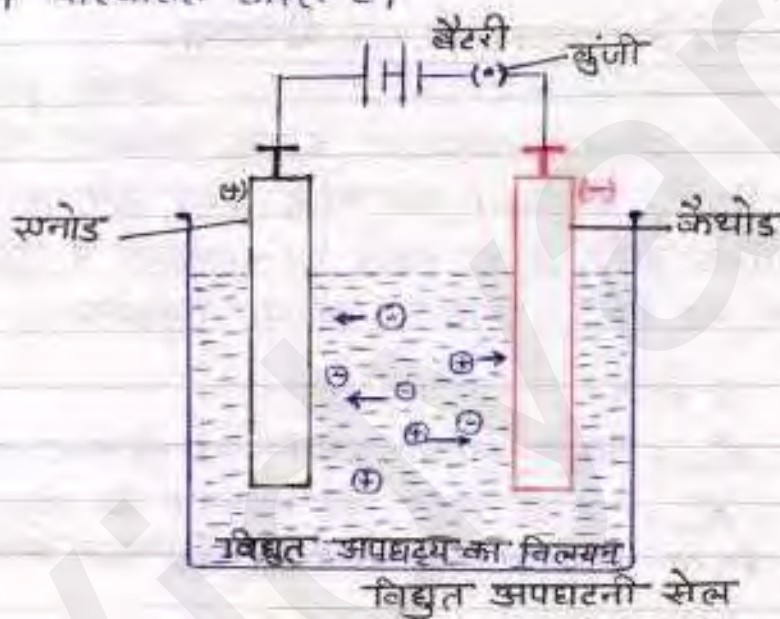 बैटरी
कुंजी
(•)
(+)
(−)
एनोड
कैथोड
−
+
−
−
+
−
+
विद्युत अपघट्य का विलयन
विद्युत अपघटनी सेल